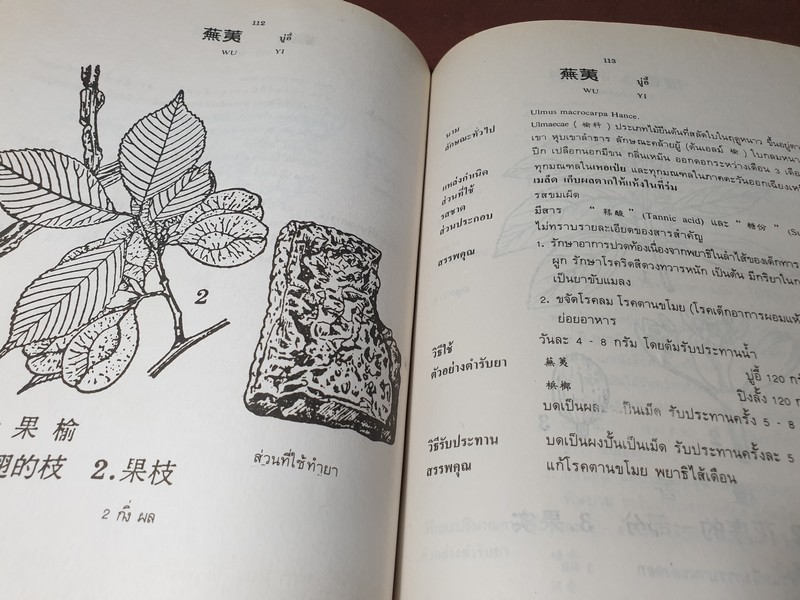 112
蕪荑 บู่อี๋
WU YI
2
果榆
的枝 2.果枝
2 กิ่ง ผล
ส่วนที่ใช้ทำยา
113
蕪荑 บู่อี๋
WU YI
นาม Ulmus macrocarpa Hance.
ลักษณะทั่วไป Ulmaecae ( 榆科 ) ประเภทไม้ยืนต้นที่สลัดใบในฤดูหนาว ขึ้นอยู่ตาม
เขา หุบเขาลำธาร ลักษณะคล้ายยู้ (ต้นเอลม์ 榆 ) ใบกลมหนา
ปีก เปลือกนอกมีขน กลิ่นเหม็น ออกดอกระหว่างเดือน 3 เดือ
แหล่งกำเนิด ทุกมณฑลในเหอเป่ย และทุกมณฑลในภาคตะวันออกเฉียงเห
ส่วนที่ใช้ เมล็ด เก็บผลตากให้แห้งในที่ร่ม
รสชาด รสขมเผ็ด
ส่วนประกอบ มีสาร " 鞣酸 " (Tannic acid) และ " 糖份 " (Su
ไม่ทราบรายละเอียดของสารสำคัญ
สรรพคุณ 1. รักษาอาการปวดท้องเนื่องจากพยาธิในลำไส้ของเด็กทาร
ผูก รักษาโรคริดสีดวงทวารหนัก เป็นตัน มีกริยาในก
เป็นยาขับแมลง
2. ขจัดโรคลม โรคตานขโมย (โรคเด็กอาการผอมแห้
ย่อยอาหาร
วิธีใช้ วันละ 4 - 8 กรัม โดยต้มรับประทานน้ำ
ตัวอย่างตำรับยา 蕪荑 บู่อี๋ 120 กรั
梹榔 ปิงลั้ง 120 ก
บดเป็นผล เป็นเม็ด รับประทานครั้ง 5 - 8
วิธีรับประทาน บดเป็นผงปั้นเป็นเม็ด รับประทานครั้งละ 5
สรรพคุณ แก้โรคตานขโมย พยาธิไส้เดือน